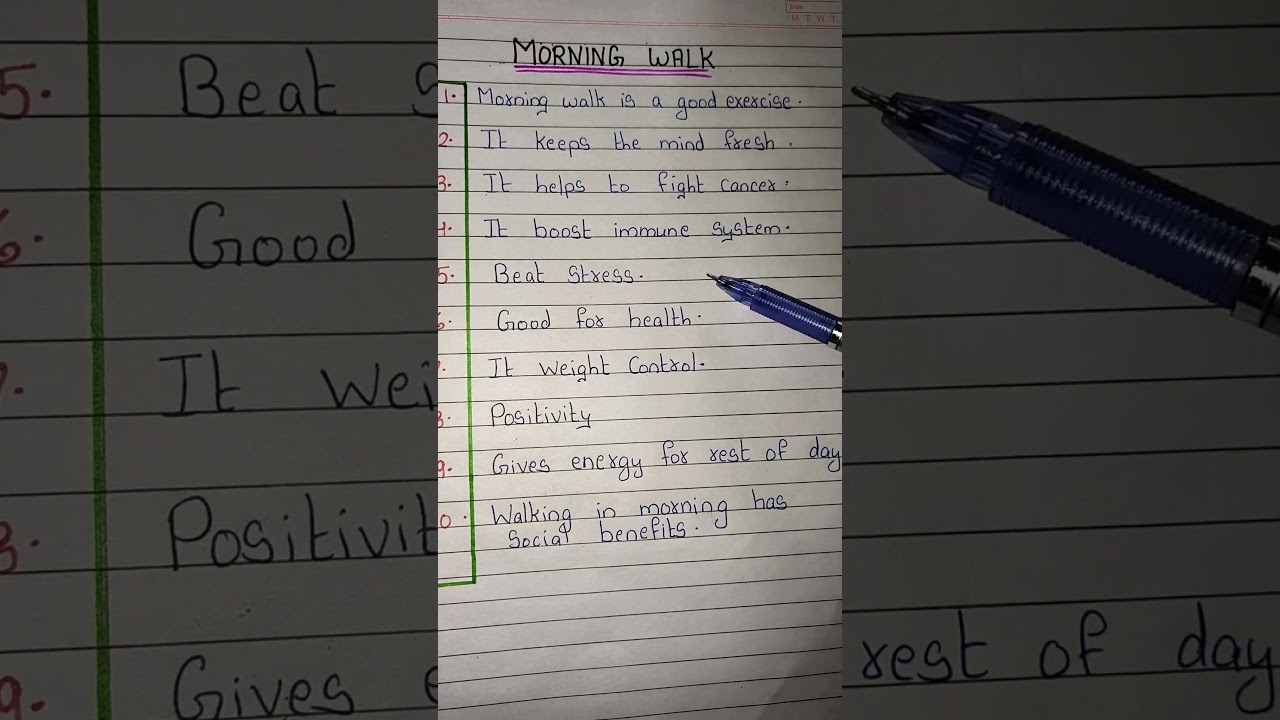 Date
M T W T
MORNING WALK
1. Morning walk is a good exercise.
2. It keeps the mind fresh.
3. It helps to fight cancer.
4. It boost immune system.
5. Beat Stress.
6. Good for health.
7. It weight Control.
8. Positivity
9. Gives energy for rest of day
0. Walking in morning has
Social benefits.
5. Beat S
6. Good
7. It wei
8. Positivit
9. Gives e
rest of day